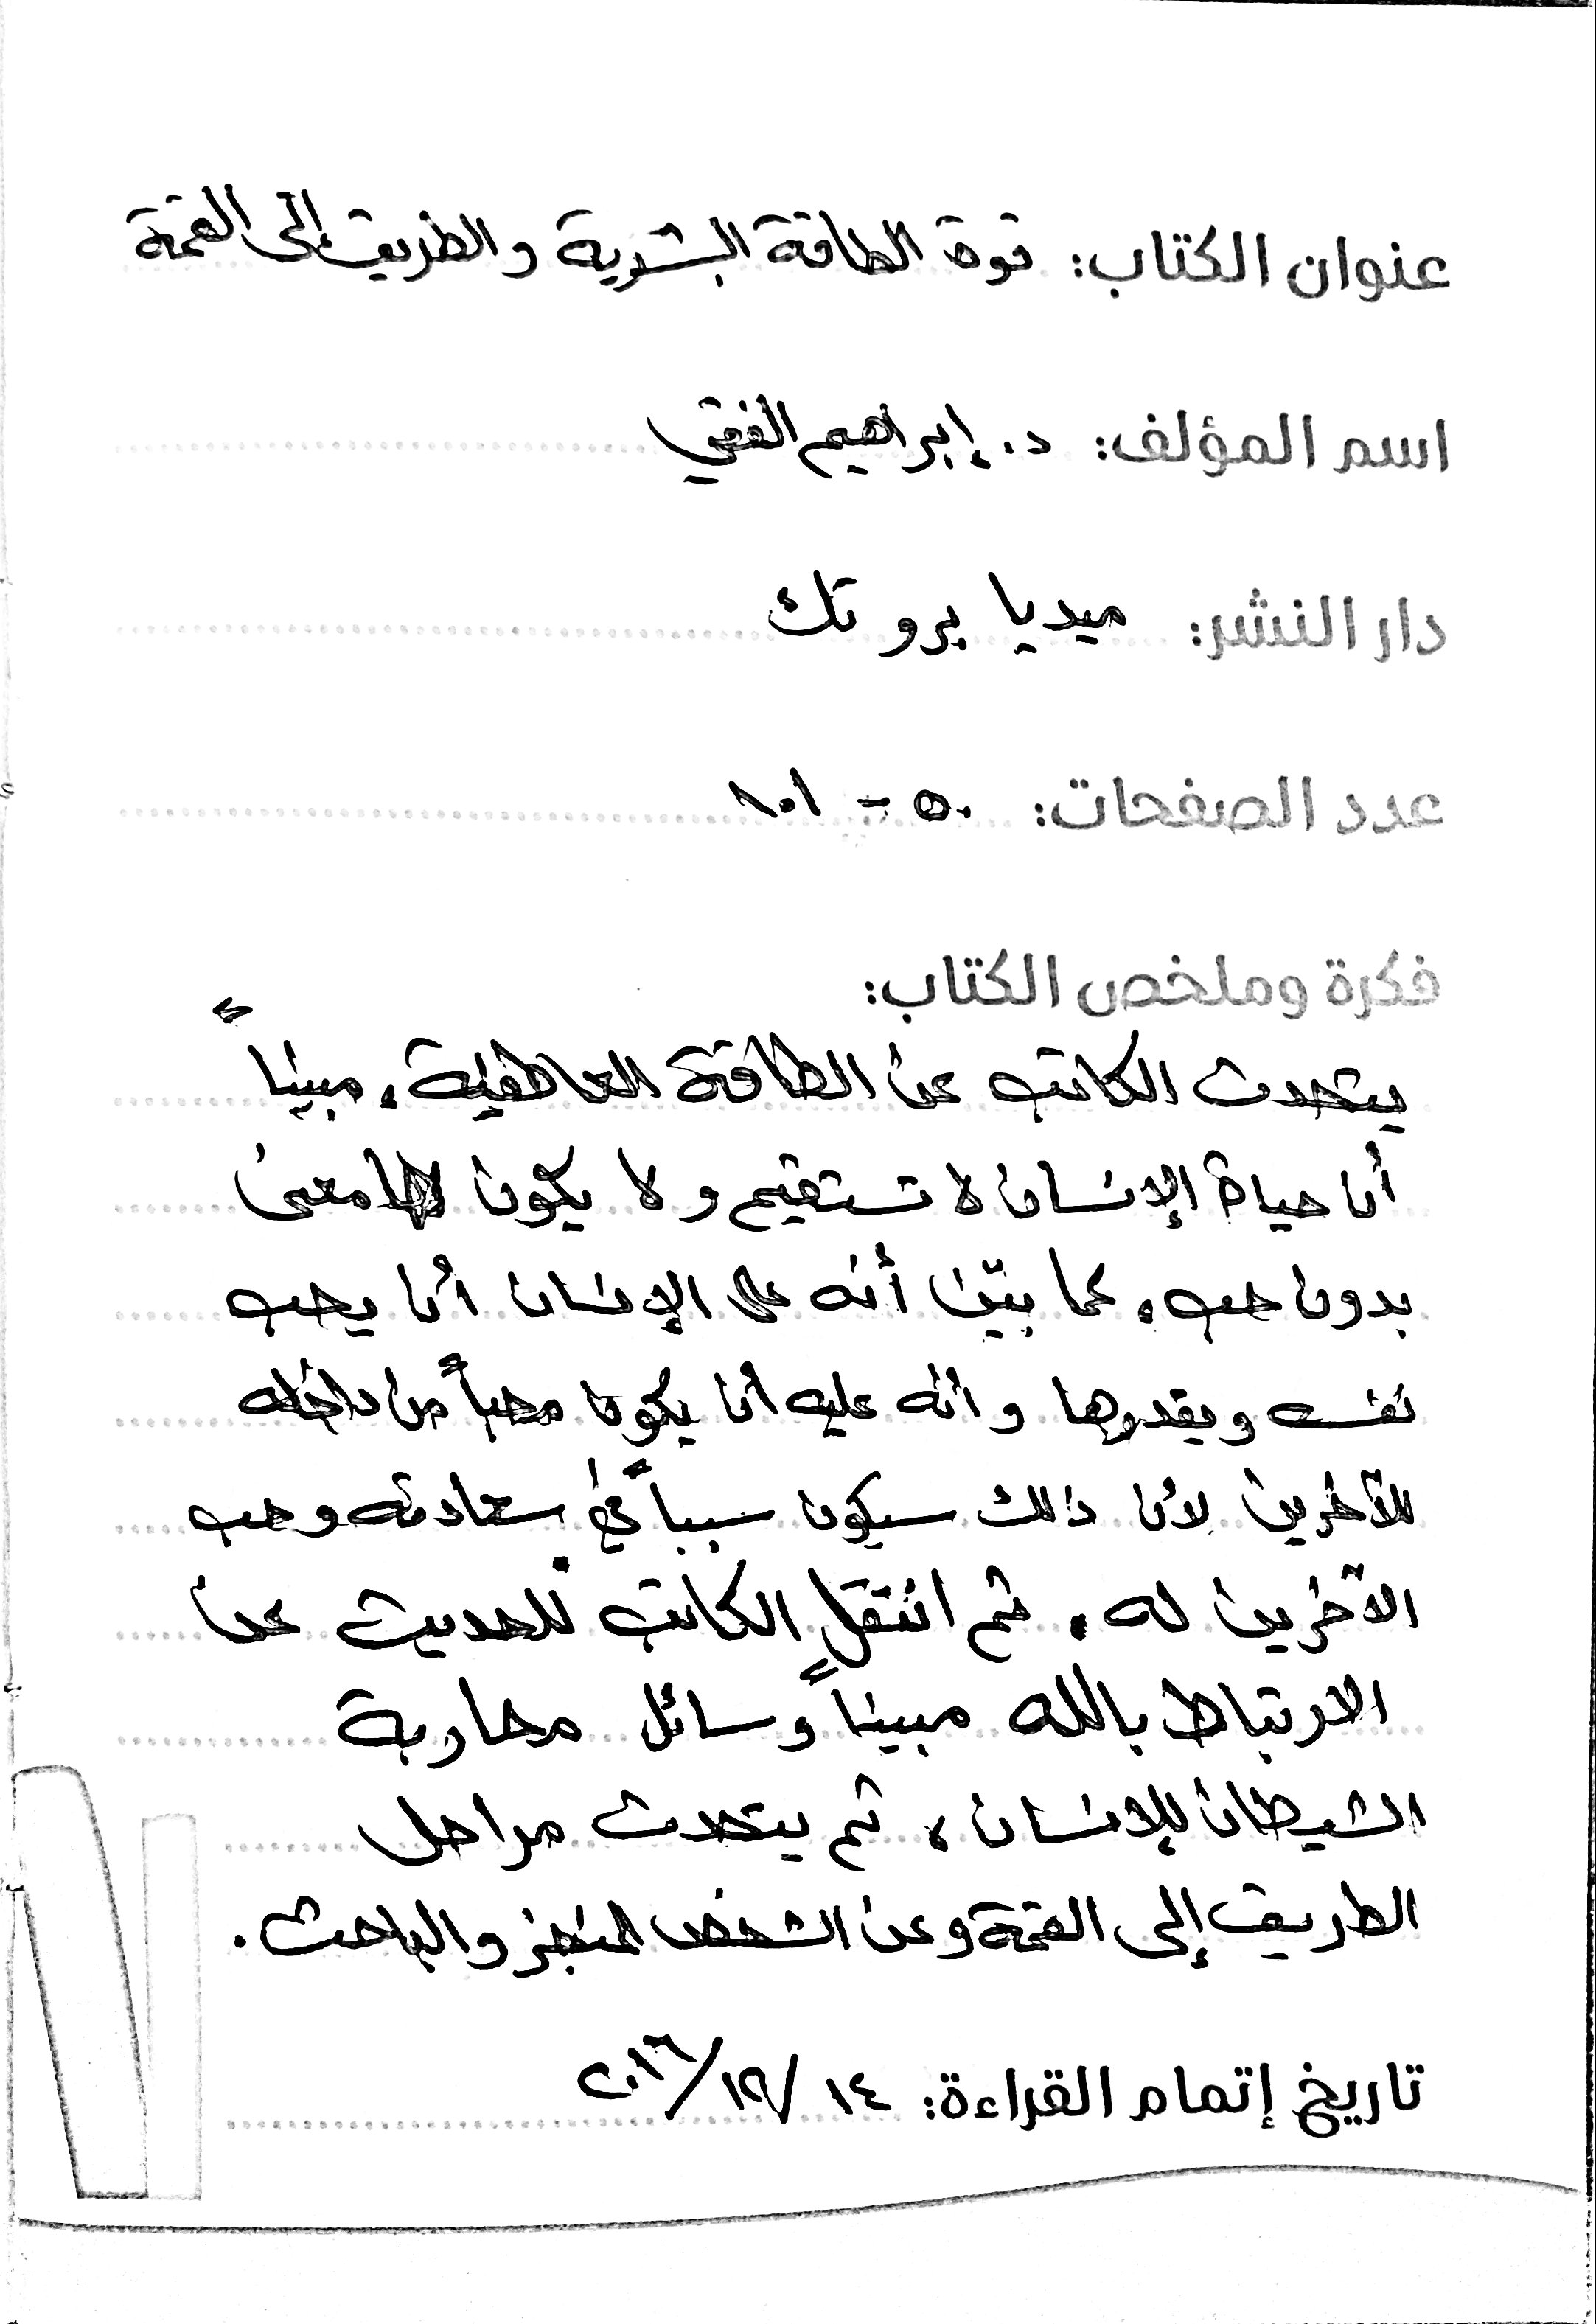 عنوان الكتاب: قوة الطاقة البشرية والطريق إلى القمة
اسم المؤلف: د. إبراهيم الفقي
دار النشر: ميديا برو تك
عدد الصفحات: ٥٠ - ١٠١
فكرة وملخص الكتاب:
يتحدث الكاتب عن الطاقة العاطفية، مبيناً
أن حياة الإنسان لا تستقيم ولا يكون لها معنى
بدون حب، كما بيّن أنه على الإنسان أن يحب
نفسه ويقدرها وأنه عليه أن يكون محباً من داخله
للآخرين لأن ذلك سيكون سبباً في سعادته وحب
الآخرين له، ثم انتقل الكاتب للحديث عن
الارتباط بالله مبيناً وسائل محاربة
الشيطان للإنسان، ثم يتحدث مراحل
الطريق إلى القمة وعن الشخص المنجز والباحث.
تاريخ إتمام القراءة: ١٤ /١٢/ ٢٠١٦